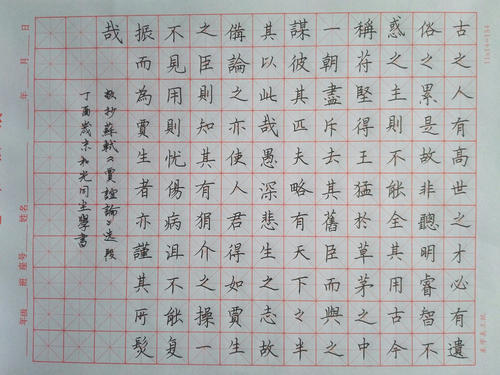 古之人有高世之才必有遺
俗之累是故非聰明睿智不
惑之主則不能全其用古今
稱苻堅得王猛於草茅之中
一朝盡斥去其舊臣而與之
謀彼其匹夫略有天下之半
其以此哉愚深悲生之志故
備論之亦使人君得如賈生
之臣則知其有狷介之操一
不見用則憂傷病沮不能復
振而為賈生者亦謹其所發
哉
敬抄蘇軾《賈誼論》選段
丁酉歲末和光同塵學書
年级 班 座号 姓名 年 月 日
11x14=154